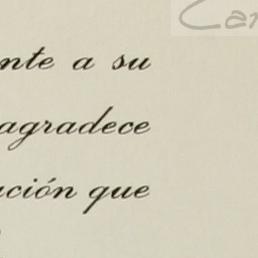 Can
nte a su
agradece
ación que